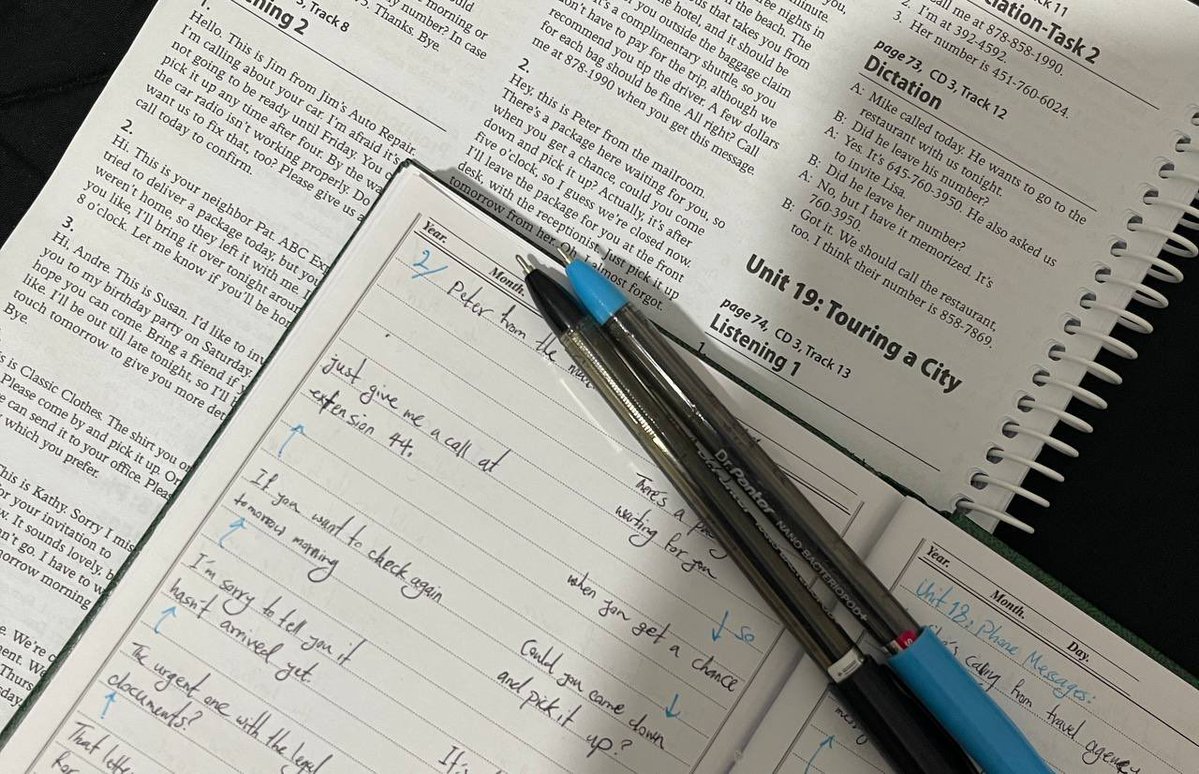 5, Track 8
ening 2
1.
Hello. This is Jim from Jim's Auto Repair.
I'm calling about your car. I'm afraid it's
not going to be ready until Friday. You
pick it up any time after four. By the
the car radio isn't working properly. Do
want us to fix that, too? Please give us a
call today to confirm.
2.
Hi. This is your neighbor Pat. ABC
tried to deliver a package today, but you
weren't home, so they left it with me.
you like, I'll bring it over tonight around
8 o'clock. Let me know if you'll be
3.
Hi, Andre. This is Susan. I'd like to
you to my birthday party on Saturday.
hope you can come. Bring a friend if
like. I'll be out till late tonight, so I'll
touch tomorrow to give you more
Bye.
is Classic Clothes. The shirt you
Please come by and pick it up. Or
can send it to your office.
which you prefer.
This is Kathy. Sorry I
your invitation to
It sounds lovely,
go. I have to
morning
morning or
number? In case
5. Thanks. Bye.
nights in
the beach. The
that takes you from
the hotel, and it should be
you outside the baggage claim
It's a complimentary shuttle, so you
don't have to pay for the trip, although we
recommend you tip the driver. A few dollars
for each bag should be fine. All right? Call
me at 878-1990 when you get this message.
2.
Hey, this is Peter from the mailroom.
There's a package here waiting for you, so
when you get a chance, could you come
down and pick it up? Actually, it's after
five o'clock, so I guess we're closed now.
I'll leave the package for you at the front
desk, with the receptionist. Just pick it up
tomorrow from her. almost forgot.
call me at 878-858-1990.
2. I'm at 392.4592.
3. Her number is 451-760-6024.
ciation-Task 2
page 73, CD 3, Track 12
Dictation
A: Mike called today. He wants to go to the
restaurant with us tonight.
B: Did he leave his number?
A: Yes. It's 645-760-3950. He also asked us
to invite Lisa.
B: Did he leave her number?
A: No, but I have it memorized. It's
760-3950.
B: Got it. We should call the restaurant,
too. I think their number is 858-7869.
Unit 19: Touring a City
page 74, CD 3, Track 13
Listening 1
1.
Year.
Month.
2/ Peter from the
just give me a call at
extension 44.
If you want to check again
tomorrow morning
I'm sorry to tell you it
hasn't arrived yet
The urgent one with the legal
documents?
That letter
There's a
waiting for you
when you get a chance
so
Could you come down
and pick it up?
It's
Dr.Panter NANO BACTERIOPOD+
Year.
Month.
Day.
Unit 18: Phone Messages:
calling from travel agency